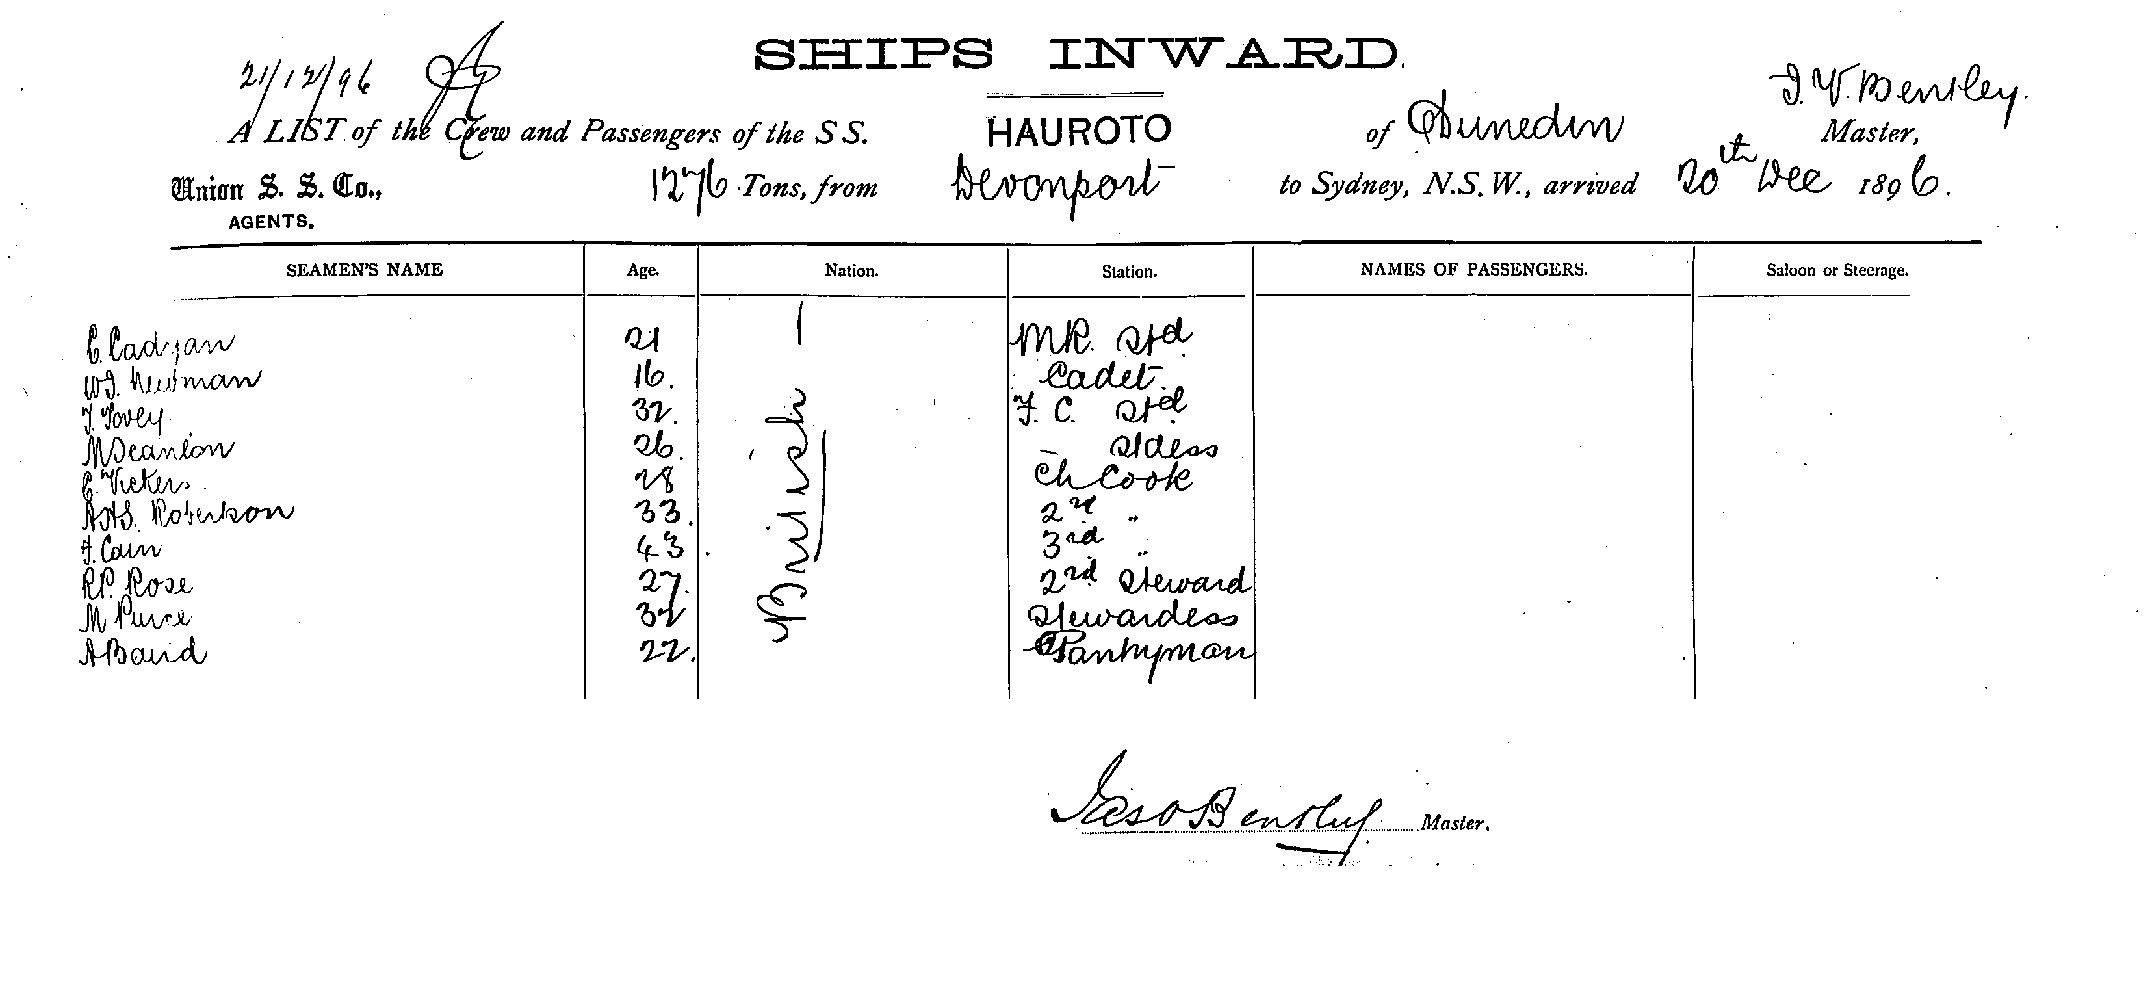 SHIPS INWARD.
21/12/96
J. V. Bentley.
A LIST of the Crew and Passengers of the S S. HAUROTO of Dunedin Master,
Union S. S. Co., 1276 Tons, from Devonport to Sydney, N.S.W., arrived 20th Dec 1896.
AGENTS.
SEAMEN'S NAME Age. Nation. Station. NAMES OF PASSENGERS. Saloon or Steerage.
British
C. 21 MR. Std
Newman 16. Cadet.
Tovey 32. F. C. Std
M Scanlon 26. – Stdess
Vickers 28 Ch Cook
Robertson 33. 2nd "
Cain 43 3rd "
R.P. Rose 27. 2nd Steward
M 32 Stewardess
A Baird 22. Pantryman
Bentley Master.